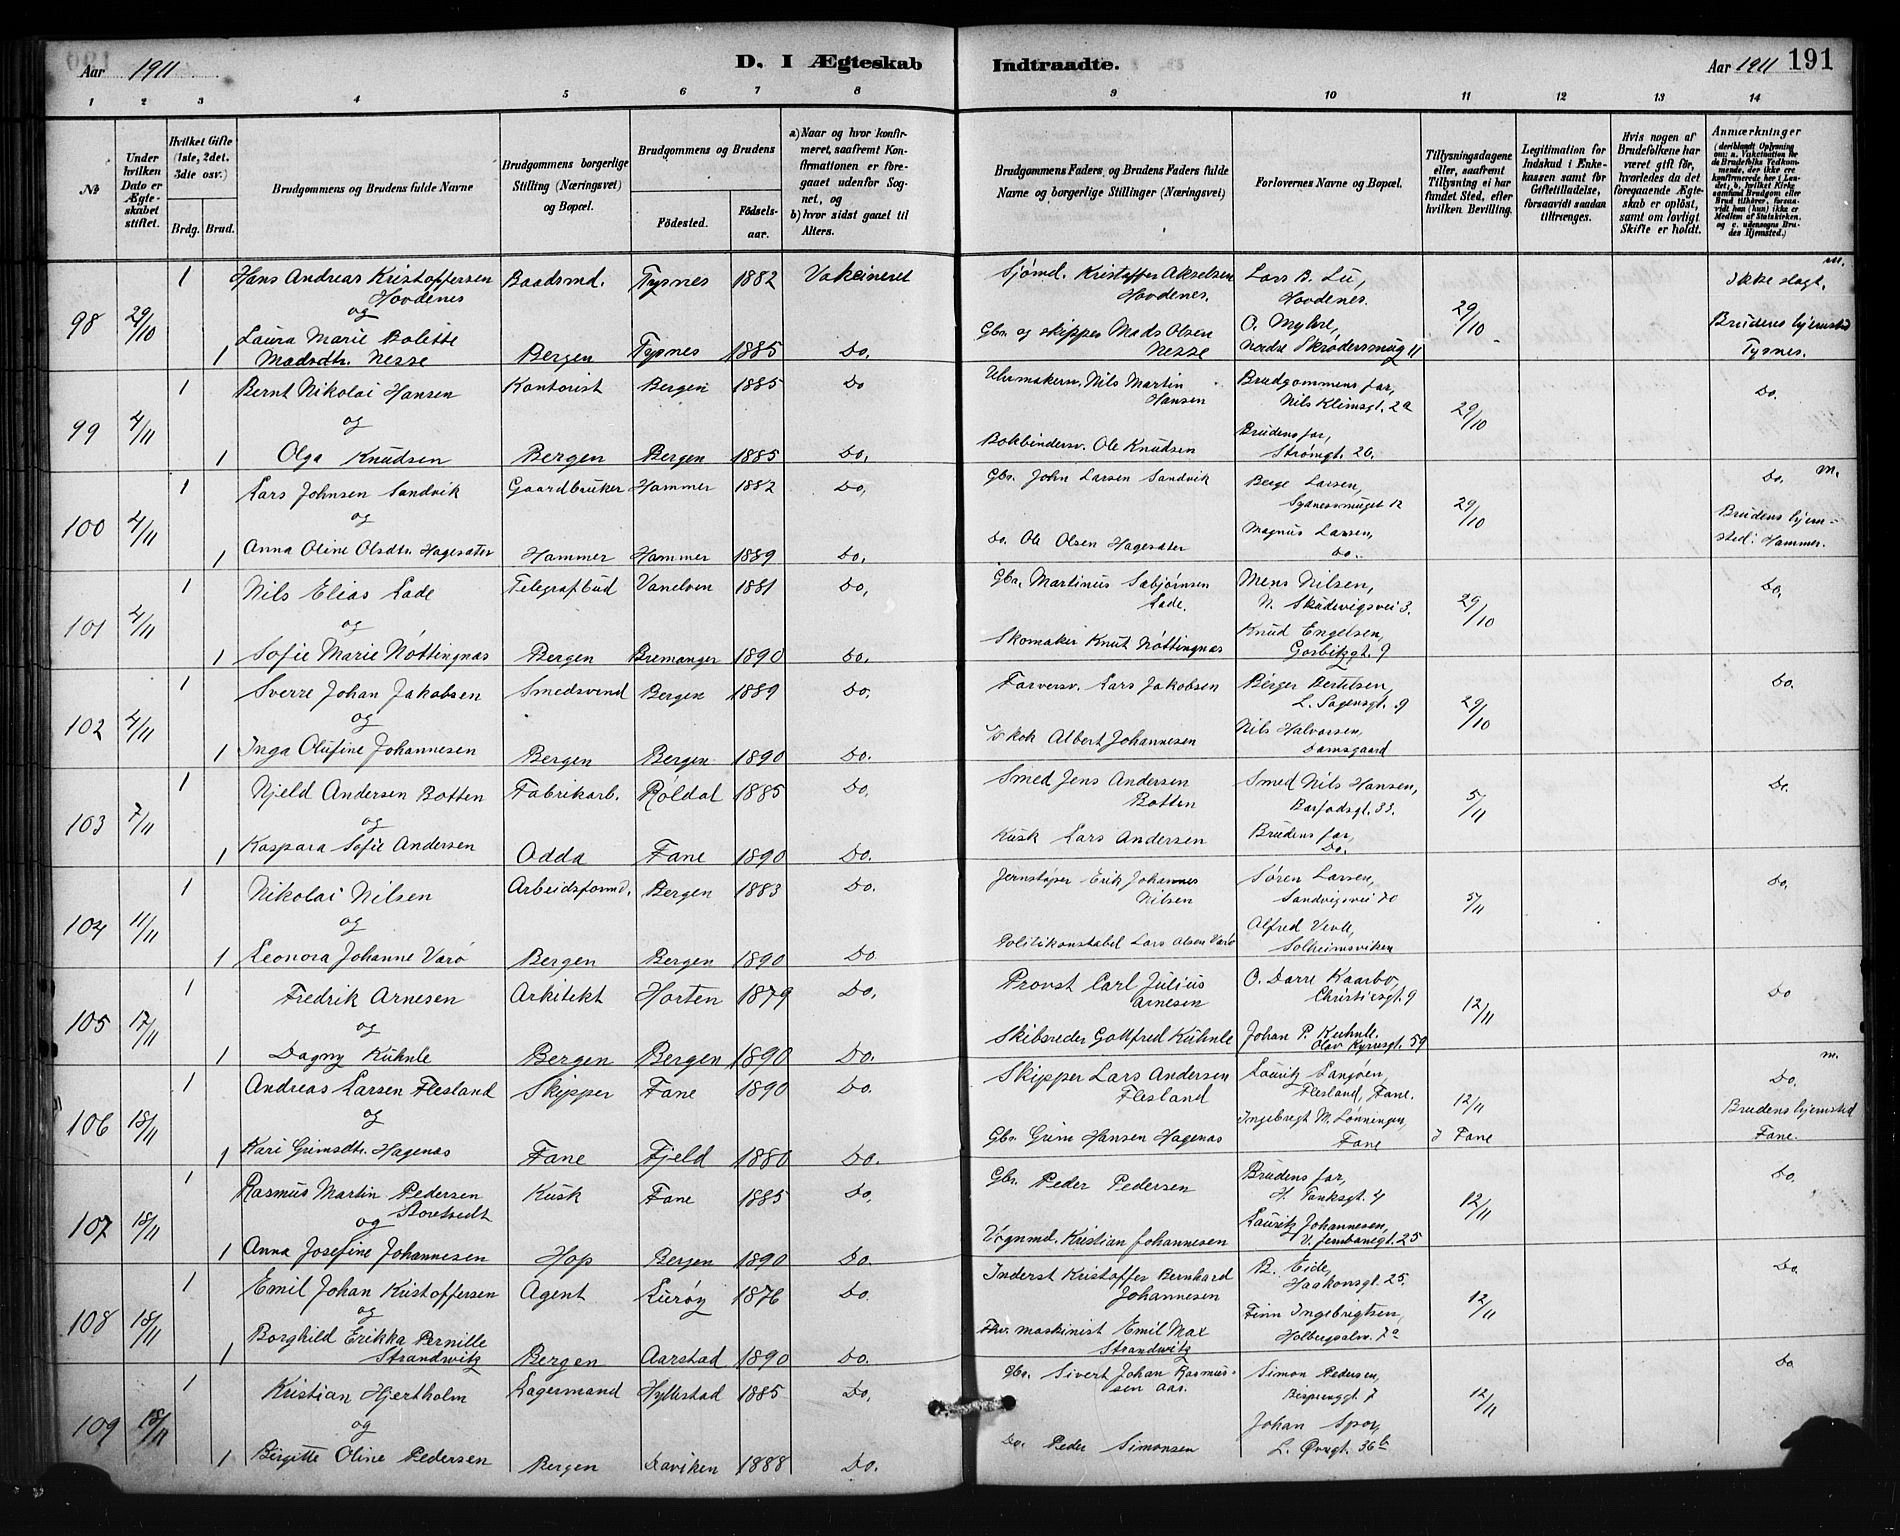 Aar 1911
D. I Ægteskab Indtraadte.
Aar 1911 191
1 2 3 4 5 6 7 8 9 10 11 12 13 14
No
Under hvilken Dato er Ægteskabet stiftet.
Hvilket Gifte (1ste, 2det, 3die osv.)
Brdg. Brud.
Brudgommens og Brudens fulde Navne
Brudgommens borgerlige Stilling (Næringsvei) og Bopæl.
Brudgommens og Brudens
Fødested. Fødselsaar.
a) Naar og hvor konfirmeret, saafremt Konfirmationen er foregaaet udenfor Sognet, og
b) hvor sidst gaaet til Alters.
Brudgommens Faders og Brudens Faders fulde Navne og borgerlige Stillinger (Næringsvei)
Forlovernes Navne og Bopæl.
Tillysningsdagene eller, saafremt Tillysning ei har fundet Sted, efter hvilken Bevilling.
Legitimation for Indskud i Enkekassen samt for Giftetilladelse, forsaavidt saadan tiltrænges.
Hvis nogen af Brudefolkene har været gift før, hvorledes da det foregaaende Ægteskab er opløst, samt om lovligt Skifte er holdt.
Anmærkninger (deriblandt Oplysning om: a. Vakcination for de Brudefolks Vedkommende, der ikke ere konfirmerede her i Landet; b. hvilket Kirkesamfund Brudgom eller Brud tilhører, forsaavidt han (hun) ikke er Medlem af Statskirken, og c. udensogns Brudes Hjemsted.)
98 29/10 1 Hans Andreas Kristoffersen Hovdenes Baadsmd. Tysnes 1882 Vakcineret Sjømd. Kristoffer Akselsen Hovdenes. Lars B. Lu, Hovdenes. 29/10 Ikke slægt. m.
og
1 Laura Marie Bolette Madsdtr. Nesse Bergen Tysnes 1885 Do. Gbr. og skipper Mads Olsen Nesse O. Myhre, nedre Skrødersmug 11 Brudens hjemsted Tysnes.
99 4/11 1 Bernt Nikolai Hansen Kontorist Bergen 1885 Do Uhrmakersv. Nils Martin Hansen Brudgommens far, Nils Klimsgt. 2a 29/10 Do.
og
1 Olga Knudsen Bergen Bergen 1885 Do. Bokbindersv. Ole Knudsen Brudens far, Strømgt. 20.
100 4/11 1 Lars Johnsen Sandvik Gaardbruker Hammer 1882 Do. Gbr. John Larsen Sandvik Berge Larsen, Sydnessmuget 12 29/10 Do. m.
og
1 Anna Oline Olsdtr. Hagesæter Hammer Hammer 1889 Do. Do. Ole Olsen Hagesæter Magnus Larsen, Do. Brudens hjemsted: Hammer.
101 4/11 1 Nils Elias Lade Telegrafbud Vanelven 1881 Do. Gbr. Martinus Sæbjørnsen Lade. Mons Nilsen, N. Skudevigsvei 3. 29/10 Do.
og
1 Sofie Marie Nøttingnæs Bergen Bremanger 1890 Do. Skomaker Knut Nøttingnæs Knud Engelsen, Gørbitzgt. 9
102 4/11 1 Sverre Johan Jakobsen Smedsvend Bergen 1889 Do. Farversv. Lars Jakobsen Berger Bertelsen, L. Sagensgt. 9 29/10 Do.
og
1 Inga Olufine Johannesen Bergen Bergen 1890 Do. Kok Albert Johannesen Nils Halvorsen, Damsgaard
103 7/11 1 Njeld Andersen Botten Fabrikarb. Røldal 1885 Do. Smed Jens Andersen Botten Smed Nils Hansen, Barfodsgt. 33. 5/11 Do.
og
1 Kaspara Sofie Andersen Odda Fane 1890 Do. Kusk Lars Andersen Brudens far, Do.
104 11/11 1 Nikolai Nilsen Arbeidsformd. Bergen 1883 Do. Jernstøper Erik Johannes Nilsen Søren Larsen, Sandvigsvei 70 5/11 Do.
og
1 Leonora Johanne Varø Bergen Bergen 1890 Do Politikonstabel Lars Olsen Varø Alfred Solheimsviken
105 17/11 1 Fredrik Arnesen Arkitekt Horten 1879 Do. Provst Carl Julius Arnesen O. Darre Kaarbø, Christiesgt. 9 12/11 Do
og
1 Dagny Kuhnle Bergen Bergen 1890 Do. Skibsreder Gottfred Kuhnle Johan P. Kuhnle. Olav Kyrresgt. 59
106 18/11 1 Andreas Larsen Flesland Skipper Fane 1890 Do. Skipper Lars Andersen Flesland Lauritz Langøen, Flesland, Fane. 12/11 Do. m.
og
1 Kari Grimsdtr. Hagenæs Fane Fjeld 1880 Do. Gbr. Grim Hansen Hagenæs Ingebregt M. Lønningen, Fane I Fane Brudens hjemsted Fane.
107 18/11 1 Rasmus Martin Pedersen Storetvedt Kusk Fane 1885 Do. Gbr. Peder Pedersen Brudens far, H. Tanksgt. 4 12/11 Do.
og
1 Anna Josefine Johannesen Hop Bergen 1890 Do. Vognmd. Kristian Johannesen Lauritz Johannesen, V. Jernbanegt. 25
108 18/11 1 Emil Johan Kristoffersen Agent Lurøy 1876 Do. Inderst Kristoffer Bernhard Johannesen B. Eide, Haakonsgt. 25. 12/11 Do.
og
1 Borghild Erikka Pernille Strandwitz Bergen Aarstad 1890 Do. Fhv. maskinist Emil Max Strandwitz Finn Ingebrigtsen, Holbergsalm. 7a
109 18/11 1 Kristian Hjertholm Lagermand Hyllestad 1885 Do. Gbr. Sivert Johan Rasmussen Aar. Simon Pedersen, Bispenggt 7 12/11 Do
og
1 Bergitte Oline Pedersen Bergen Daviken 1888 Do. Do. Peder Simonsen Johan Spor, L. Øvregt. 36b